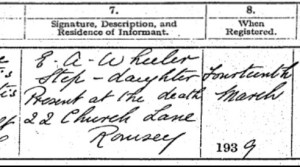 7.
Signature, Description, and
Residence of Informant.
8.
When
Registered.
E. A. Wheeler
Step-daughter
Present at the death
22 Church Lane
Romsey
Fourteenth
March
1939